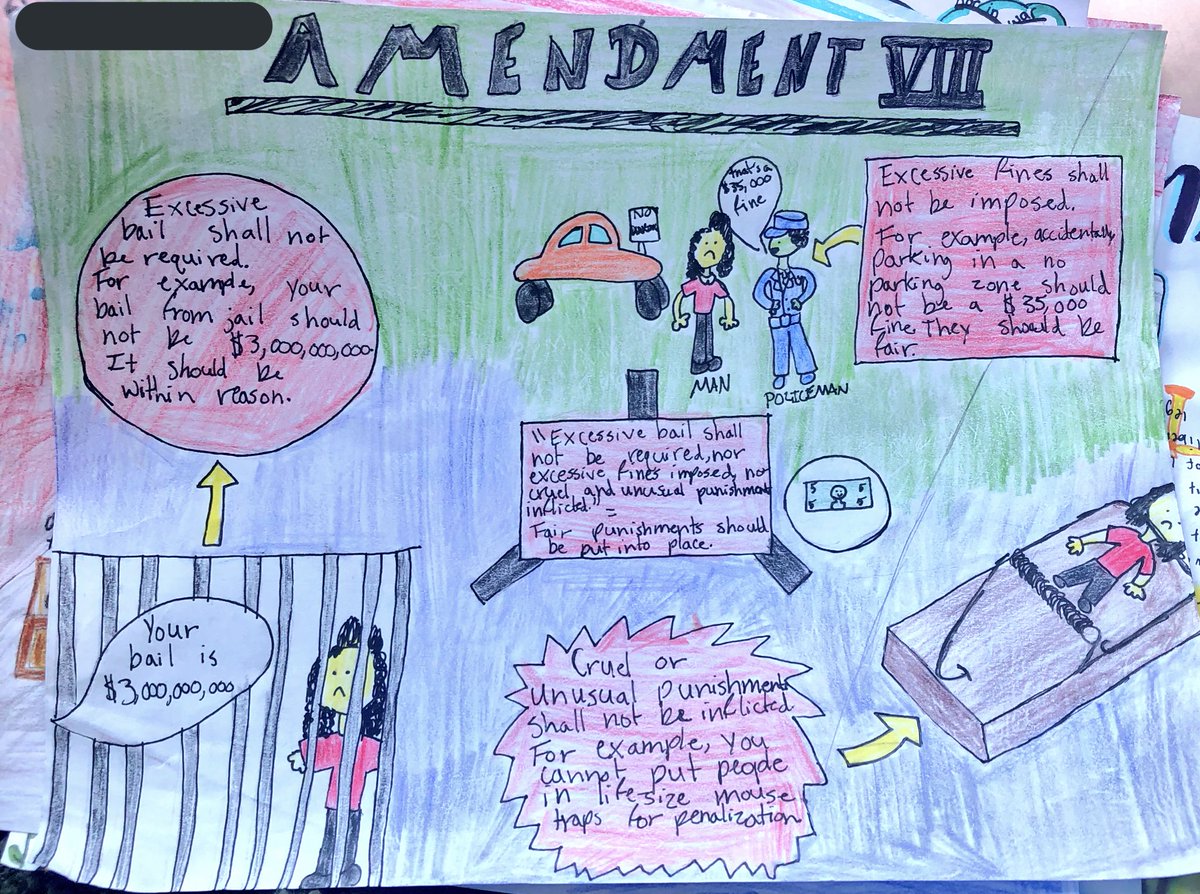 AMENDMENT VIII
Excessive
bail shall not
be required.
For example, your
bail from jail should
not be $3,000,000,000.
It should be
within reason.
that's a
$35,000
fine
NO
MAN
POLICEMAN
Excessive fines shall
not be imposed.
For example, accidentally
parking in a no
parking zone should
not be a $35,000
fine. They should be
fair.
"Excessive bail shall
not be required, nor
excessive fines imposed, nor
cruel and unusual punishments
inflicted." =
Fair punishments should
be put into place.
5 5
5 5
Your
bail is
$3,000,000,000
Cruel or
unusual punishments
shall not be inflicted
For example, you
cannot put people
in life-size mouse
traps for penalization